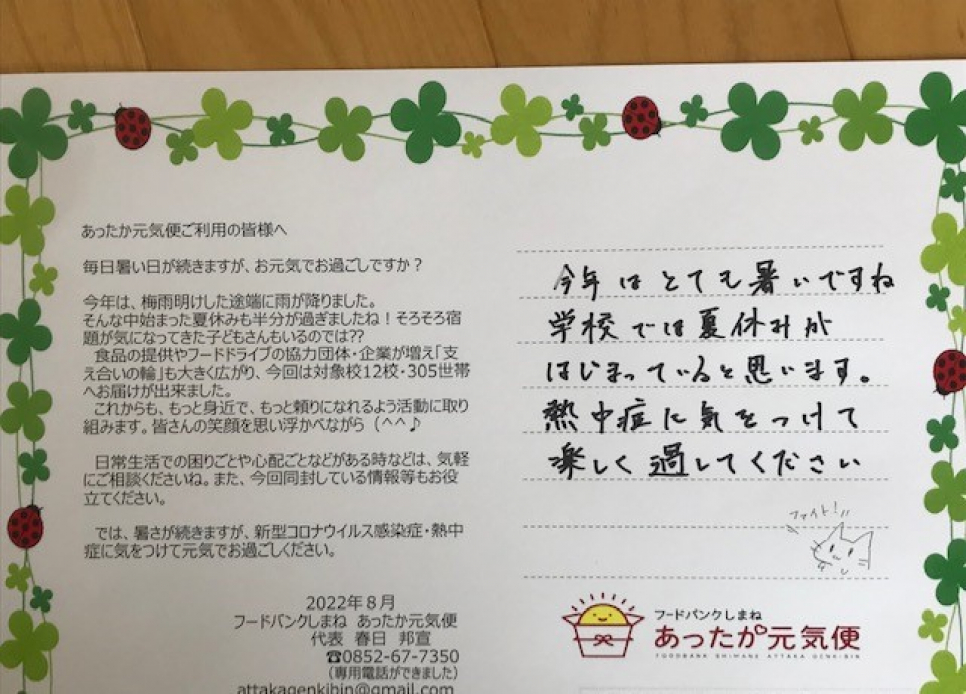 あったか元気便ご利用の皆様へ
毎日暑い日が続きますが、お元気でお過ごしですか？
今年は、梅雨明けした途端に雨が降りました。
そんな中始まった夏休みも半分が過ぎましたね！そろそろ宿
題が気になってきた子どもさんもいるのでは??
食品の提供やフードドライブの協力団体・企業が増え「支
え合いの輪」も大きく広がり、今回は対象校12校・305世帯
へお届けが出来ました。
これからも、もっと身近で、もっと頼りになれるよう活動に取り
組みます。皆さんの笑顔を思い浮かべながら（^^♪
日常生活での困りごとや心配ごとなどがある時などは、気軽
にご相談くださいね。また、今回同封している情報等もお役
立てください。
では、暑さが続きますが、新型コロナウイルス感染症・熱中
症に気をつけて元気でお過ごしください。
2022年８月
フードバンクしまね あったか元気便
代表 春日 邦宣
☎0852-67-7350
（専用電話ができました）
attakagenkibin@gmail.com
今年はとても暑いですね
学校では夏休みが
はじまっていると思います。
熱中症に気をつけて
楽しく過してください
ファイト!!
フードバンクしまね
あったか元気便
FOODBANK SHIMANE ATTAKA GENKIBIN